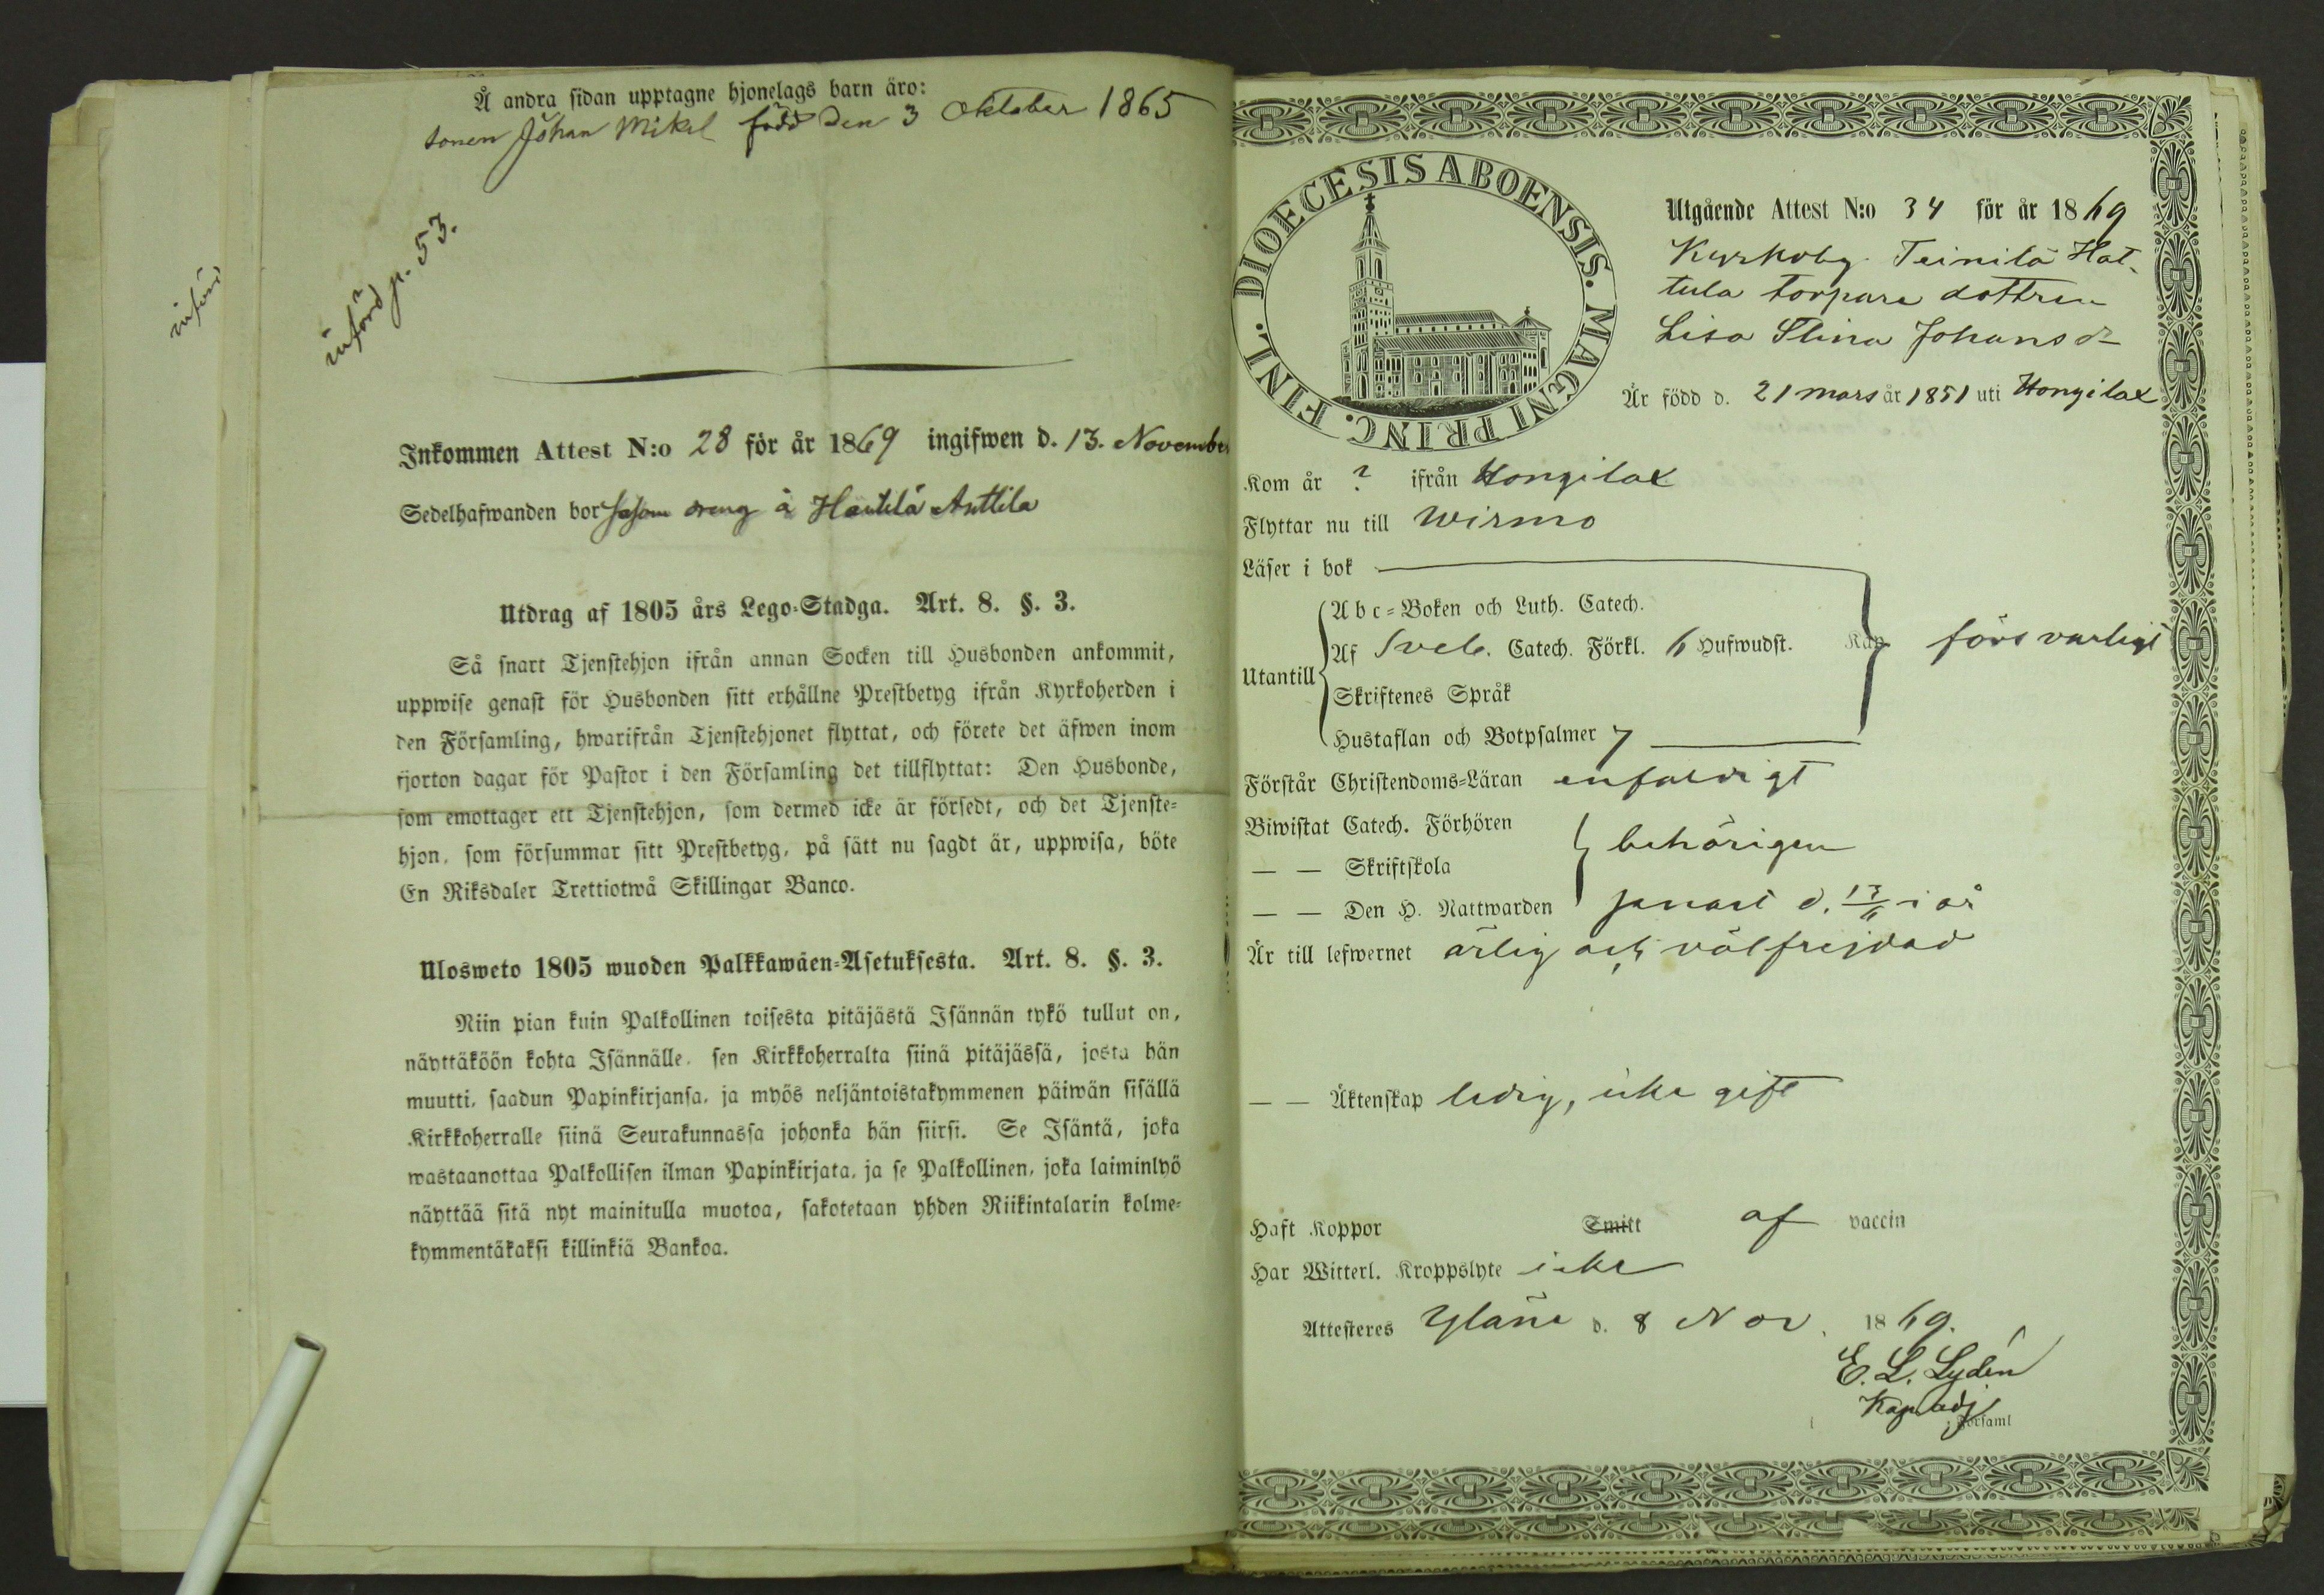 Å andra sidan upptagne hjonelags barn äro:
sonen Johan Mikel född den 3 Oktober 1865
införd p. 53.
införd
Inkommen Attest N:o 28 för år 1869 ingifwen d. 13. November
Sedelhafwanden bor såsom dreng å Häntilä Anttila
Utdrag af 1805 års Lego-Stadga. Art. 8. §. 3.
Så snart Tjenstehjon ifrån annan Socken till Husbonden ankommit,
uppwise genast för Husbonden sitt erhållne Prestbetyg ifrån Kyrkoherden i
den Församling, hwarifrån Tjenstehjonet flyttat, och förete det äfwen inom
fjorton dagar för Pastor i den Församling det tillflyttat: Den Husbonde,
som emottager ett Tjenstehjon, som dermed icke är försedt, och det Tjenste-
hjon, som försummar sitt Prestbetyg, på sätt nu sagdt är, uppwisa, böte
En Riksdaler Trettiotwå Skillingar Banco.
Ulosweto 1805 wuoden Palkkawäen-Asetuksesta. Art. 8. §. 3.
Niin pian kuin Palkollinen toisesta pitäjästä Isännän tykö tullut on,
näyttäköön kohta Isännälle, sen Kirkkoherralta siinä pitäjässä, josta hän
muutti, saadun Papinkirjansa, ja myös neljäntoistakymmenen päiwän sisällä
Kirkkoherralle siinä Seurakunnassa johonka hän siirsi. Se Isäntä, joka
wastaanottaa Palkollisen ilman Papinkirjata, ja se Palkollinen, joka laiminlyö
näyttää sitä nyt mainitulla muotoa, sakotetaan yhden Riikintalarin kolme-
kymmentäkaksi killinkiä Bankoa.
DIOECESIS ABOENSIS. MAGNI PRINC. FINL.
Utgående Attest N:o 34 för år 1869
Kyrkoby Teinilä Hat-
tula torpare dottren
Lisa Stina Johansdr
Är född d. 21 mars år 1851 uti Hongilax
Kom år ? ifrån Hongilax
Flyttar nu till Wirmo
Läser i bok
Abc-Boken och Luth. Catech.
Utantill Af Sveb. Catech. Förkl. 6 Hufwudst. Kap försvarligt
Skriftenes Språk
Hustaflan och Botpsalmer 7
Förstår Christendoms-Läran enfaldigt
Biwistat Catech. Förhören
— — Skriftskola behörigen
— — Den H. Nattwarden senast d. i år
Är till lefwernet ärlig och välfrejdad
— — Äktenskap ledig, icke gift
Haft Koppor Smitt af vaccin
Har Witterl. Kroppslyte icke
Attesteres Yläne d. 8 Nov. 1869.
E. L. Lydén
Kap. adj
i Församl